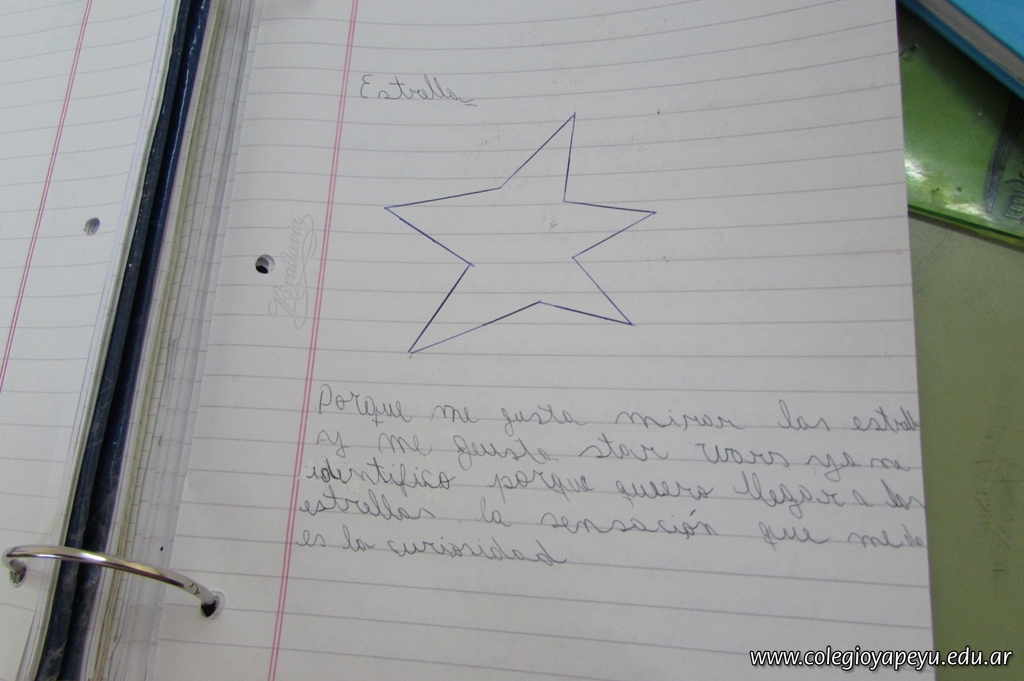 Estrella
Rivadavia
Porque me gusta mirar las estrell
y me gusta star wars ya me
identifico porque quiero llegar a las
estrellas la sensación que me da
es la curiosidad
www.colegioyapeyu.edu.ar